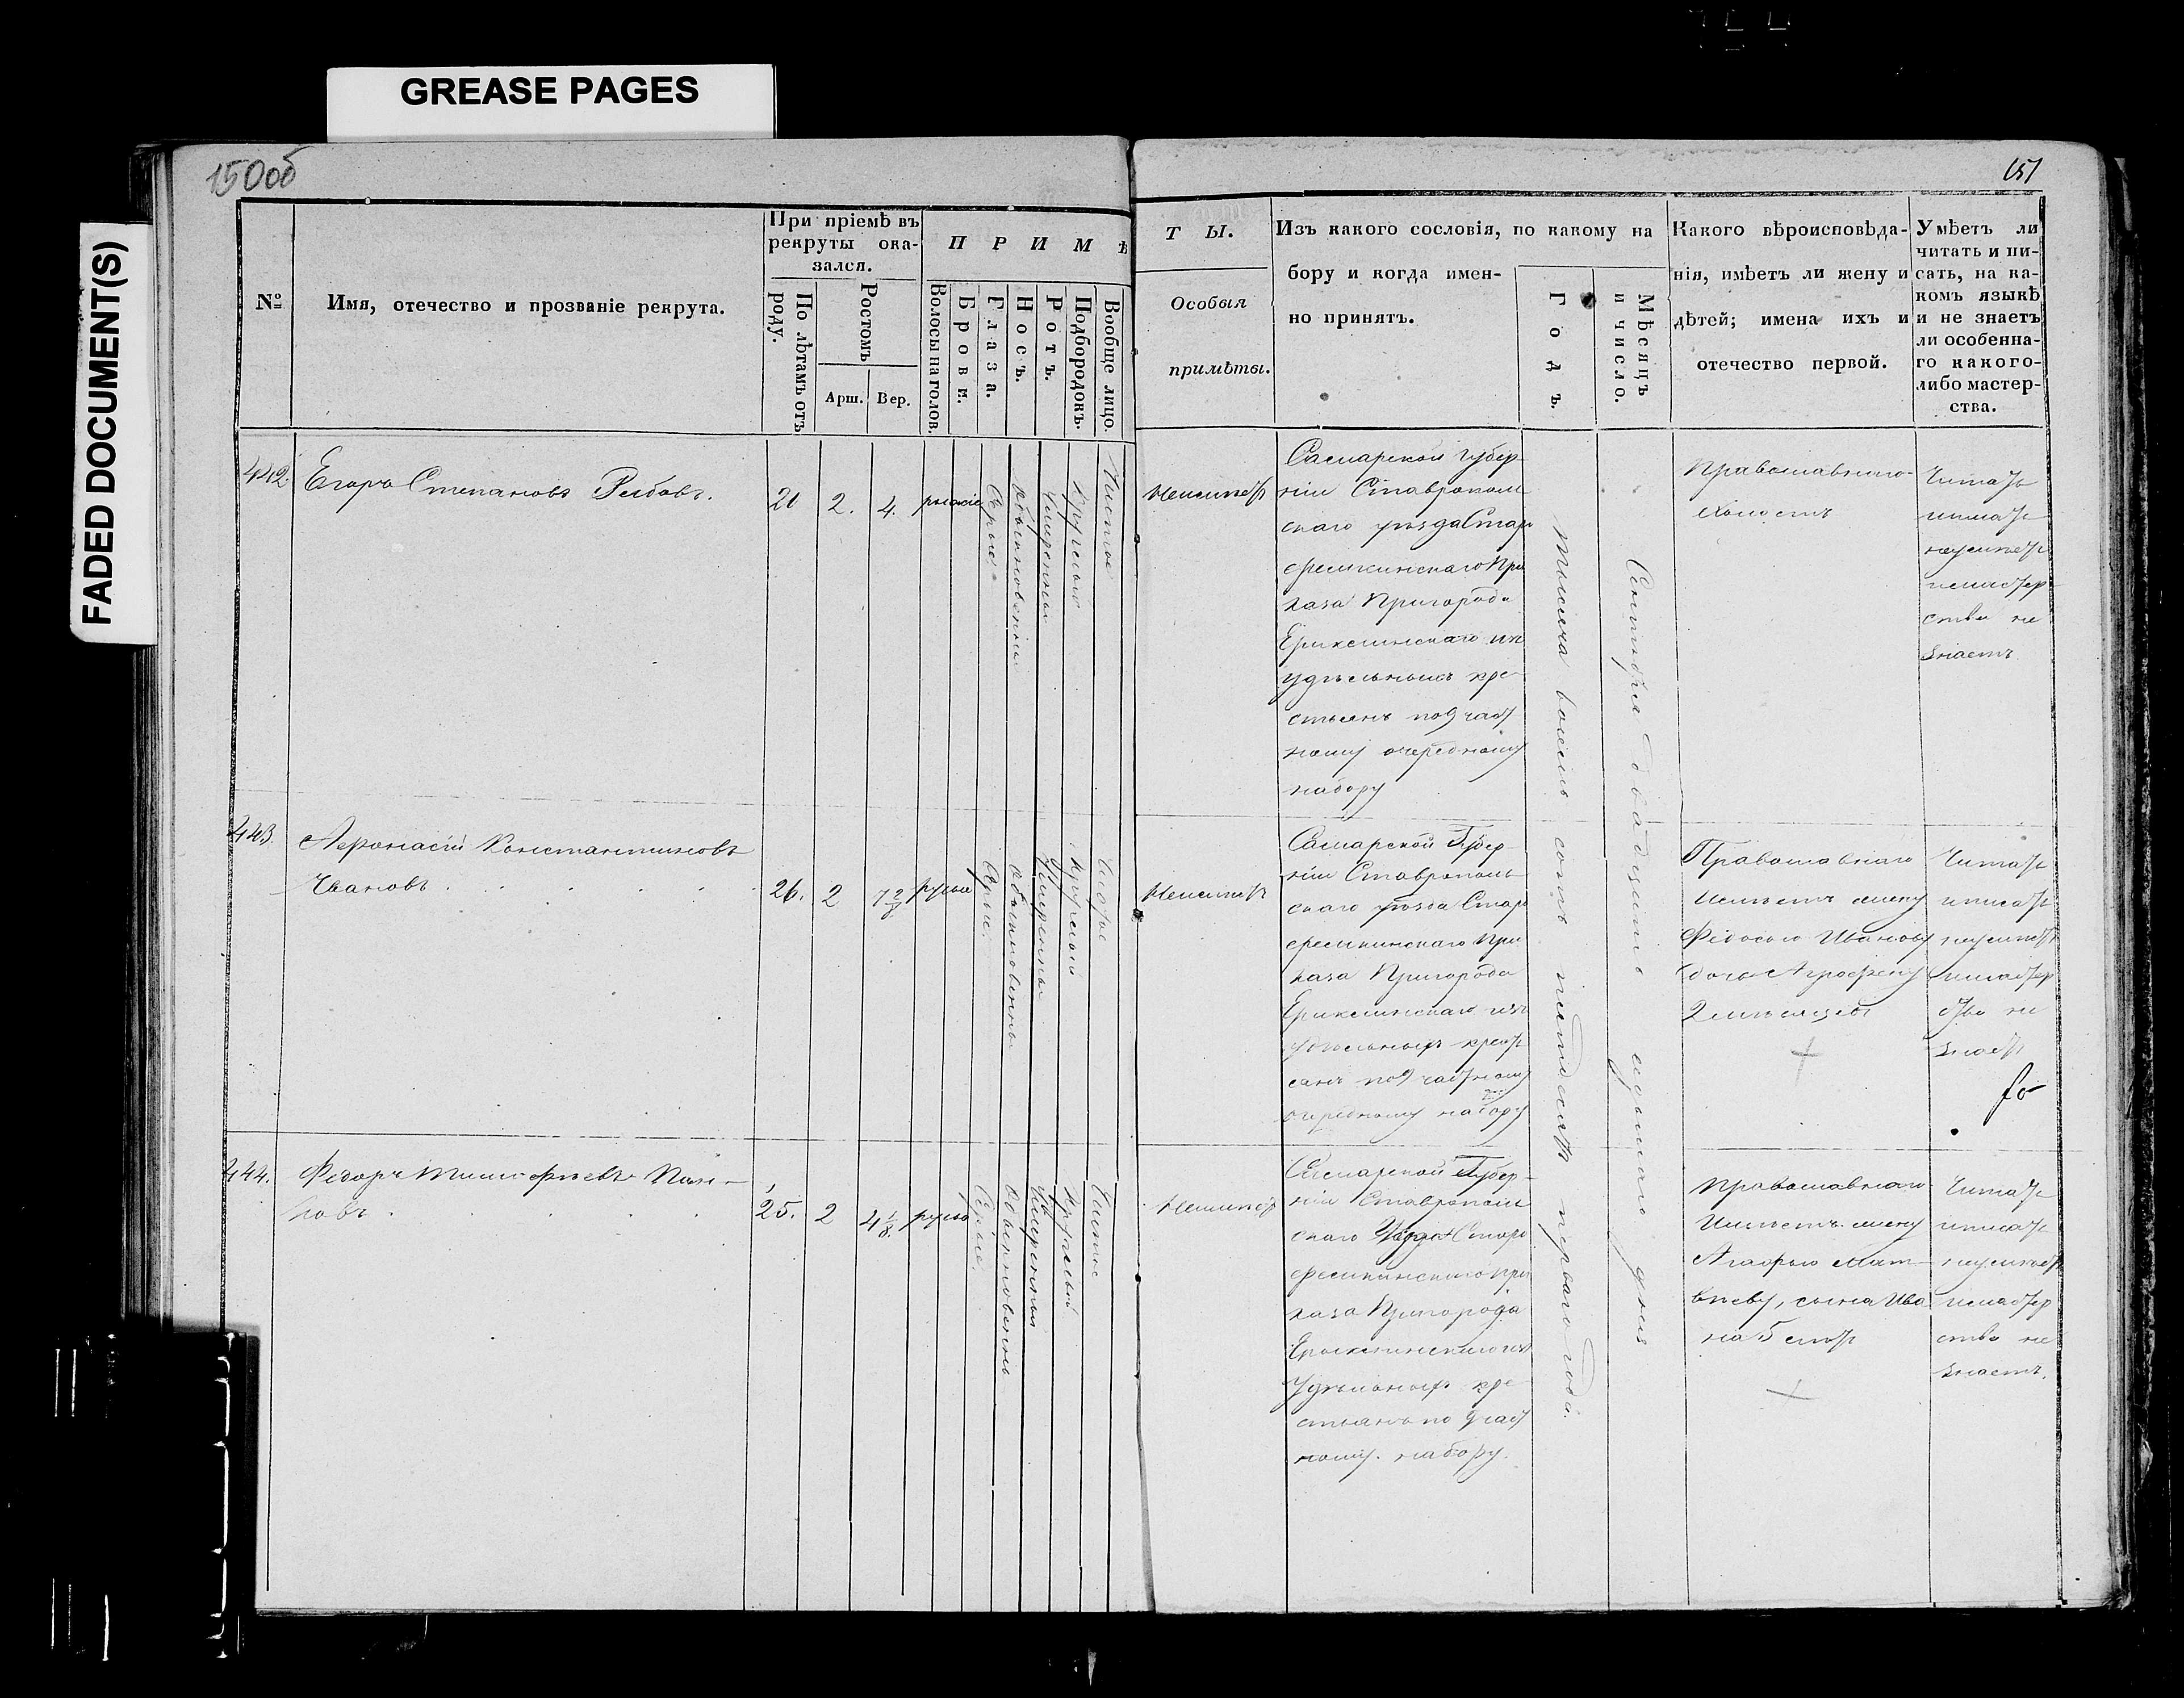 GREASE PAGES
FADED DOCUMENT(S)
150об
151
№
Имя, отечество и прозваніе рекрута.
При пріемѣ въ
рекруты ока-
зался.
По лѣтамъ отъ
роду.
Ростомъ
Арш.
Вер.
П Р И М Ѣ
Волосы на голов.
Брови.
Глаза.
Носъ.
Ротъ.
Подбородокъ.
Вообще лицо.
Т Ы.
Особыя
примѣты.
Изъ какого сословія, по какому на
бору и когда имен-
но принятъ.
Годъ.
Мѣсяцъ
и число.
Какого вѣроисповѣда-
нія, имѣетъ ли жену и
дѣтей; имена ихъ и
отечество первой.
Умѣетъ ли
читать и пи-
сать, на ка-
комъ языкѣ
и не знаетъ
ли особенна-
го какого-
либо мастер-
ства.
442.
Егоръ Степановъ
21
2.
4.
рыжіе
Сѣрые
обыкновенный
умеренный
круглый
Чистое
Неимѣетъ
Самарской губер-
ніи Ставрополь
скаго уѣзда Старо
Приказа Пригорода
Ерыклинскаго изъ
удѣльныхъ кре-
стьянъ по 9 част
ному очередному
набору
тысяча восемь сотъ пятдесятъ перваго года.
Сентября двадцать седьмаго дня
Православнаго
холостъ
Читать
и писать
неумѣетъ
и мастер-
ства не
знаетъ
443.
Афонасій Константиновъ
Ивановъ
26.
2
7 2/8
русые
Сѣрые
Обыкновенный
Умеренный
Круглый
Чистое
Неимѣетъ
Самарской Губер-
ніи Ставрополь
скаго уѣзда Старо
Приказа Пригорода
Ерыклинскаго изъ
удѣльныхъ кресть
янъ по 9 частному
очередному набору
Православнаго
Имѣетъ жену
Федосью Иванову
дочь Аграфену
2 мѣсяцевъ
Читать
и писать
неумѣетъ
и мастер
ства не
знаетъ
444.
Федоръ Тимофѣевъ Пан-
ковъ
25.
2
4 1/8.
русые
Сѣрые
Обыкновенный
Умеренный
Круглый
Чистое
Неимѣетъ
Самарской Губер-
ніи Ставрополь
скаго Уѣзда Старо
Приказа Пригорода
Ерыклинскаго изъ
Удѣльныхъ кре-
стьянъ по 9 част
ному набору.
Православнаго
Имѣетъ жену
Агафью Мат-
вѣеву, сына Ива
на 5 лѣтъ
Читать
и писать
неумѣетъ
и мастер
ства не
знаетъ.